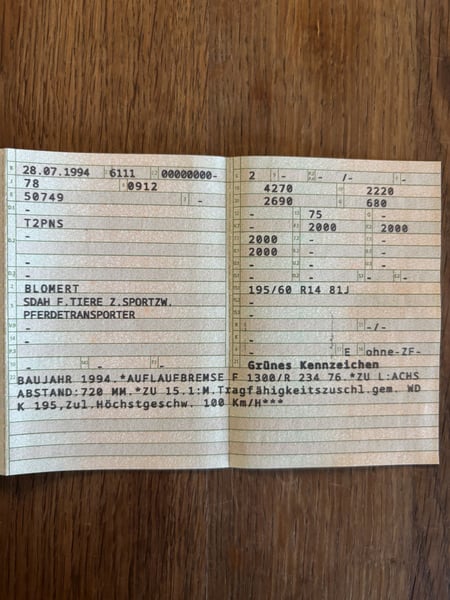 28.07.1994 6111 00000000-
78 0912
50749 -
-
T2PNS
-
-
-
-
BLOMERT
SDAH F.TIERE Z.SPORTZW.
PFERDETRANSPORTER
-
-
-
-
2 - - /- -
4270 2220
2690 680
- 75 -
- 2000 2000
2000 - -
2000 - -
- - -
- - -
195/60 R14 81J
-
-
- -/-
- E ohne-ZF-
Grünes Kennzeichen
BAUJAHR 1994.*AUFLAUFBREMSE F 1300/R 234 76.*ZU L:ACHS
ABSTAND:720 MM.*ZU 15.1:M.Tragfähigkeitszuschl.gem. WD
K 195,Zul.Höchstgeschw. 100 Km/H***